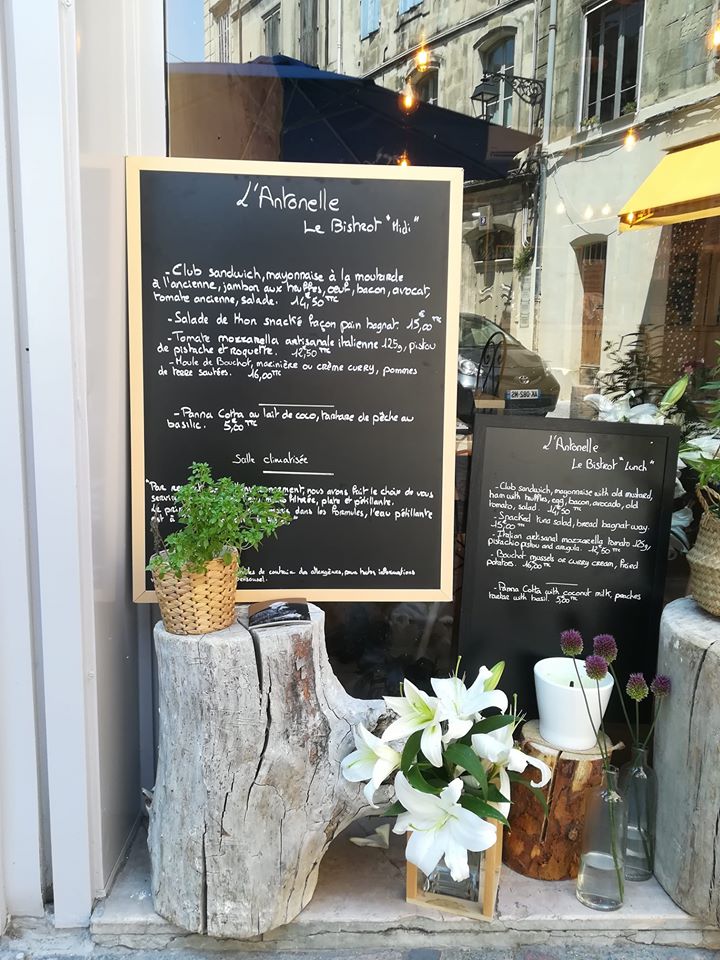 L'Antonelle
Le Bistrot "Midi"
- Club sandwich, mayonnaise à la moutarde
à l'ancienne, jambon aux truffes, oeuf, bacon, avocat,
tomate ancienne, salade. 14,50 TTC
- Salade de thon snacké façon pain bagnat. 15,00 TTC
- Tomate mozzanella artisanale italienne 125g, pistou
de pistache et roquette. 12,50 TTC
- Moule de Bouchot, marinière ou crème curry, pommes
de terre sautées. 16,00 TTC
- Panna Cotta au lait de coco, tartare de pêche au
basilic. 5,00 TTC
Salle climatisée
"Pour nous avons fait le choix de vous
filtrée, plate et pétillante.
dans les formules, l'eau pétillante
est à
contenir des allergènes, pour toutes informations
personnel.
L'Antonelle
Le Bistrot "Lunch"
- Club sandwich, mayonnaise with old mustard,
ham with truffles, egg, bacon, avocado, old
tomato, salad. 14,50 TTC
- Snacked tuna salad, bread bagnat way.
15,00 TTC
- Italian artisanal mozzarella tomato 125g
pistachio pistou and arugula. 12,50 TTC
- Bouchot mussels or curry cream, fried
potatoes. 16,00 TTC
- Panna Cotta with coconut milk, peaches
tartare with basil. 5,00 TTC